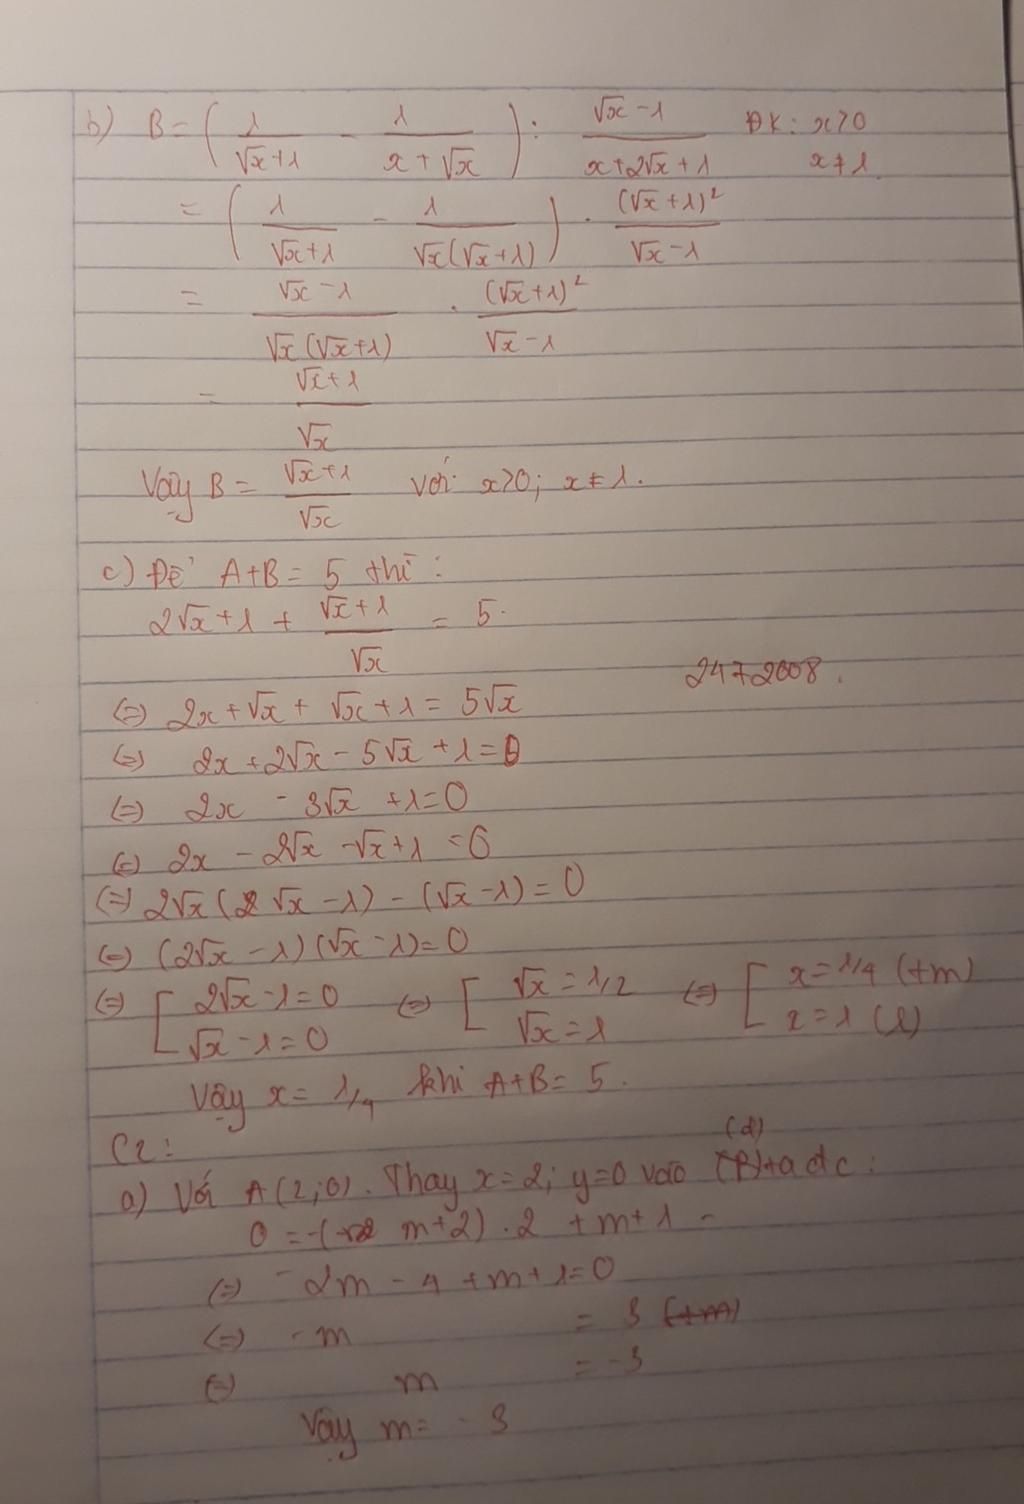 b) B = ( 1/(√x+1) - 1/(x+√x) ) : (√x-1)/(x+2√x+1) ĐK: x>0
x≠1
= ( 1/(√x+1) - 1/(√x(√x+1)) ) . (√x+1)²/(√x-1)
= (√x-1)/(√x(√x+1)) . (√x+1)²/(√x-1)
= (√x+1)/√x
Vậy B = (√x+1)/√x với x>0; x≠1.
c) Để A+B = 5 thì:
2√x+1 + (√x+1)/√x = 5.
2472008.
(=) 2x+√x + √x+1 = 5√x
(=) 2x+2√x - 5√x +1=0
(=) 2x - 3√x +1=0
(=) 2x - 2√x -√x+1 =0
(=) 2√x(√x-1) - (√x-1)=0
(=) (2√x-1)(√x-1)=0
(=) [ 2√x-1=0 (=) [ √x=1/2 (=) [ x=1/4 (tm)
√x-1=0 √x=1 x=1 (l)
Vậy x= 1/4 khi A+B= 5.
C2: (d)
a) Với A(2;0). Thay x=2; y=0 vào (P) ta đc:
0 = -(m+2).2 +m+1
(=) -2m - 4 +m+1=0
(=) -m = 3 (tm)
(=) m = -3
Vậy m= -3